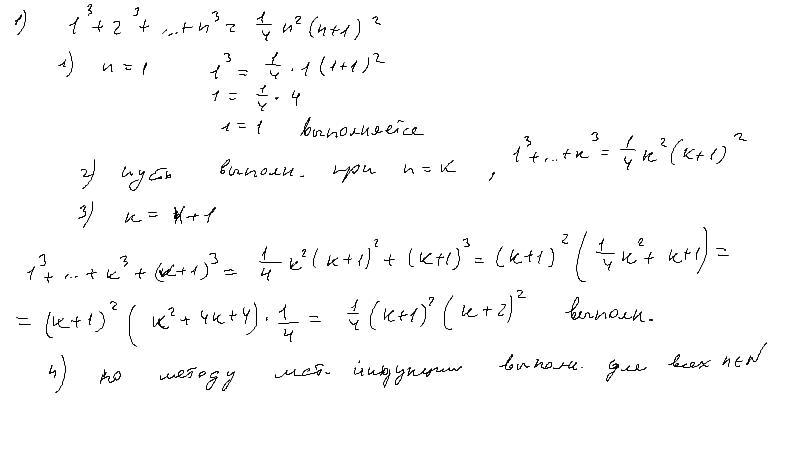 1) 1³ + 2³ + ... + n³ = 1/4 n² (n+1)²
1) n = 1 1³ = 1/4 · 1 (1+1)²
1 = 1/4 · 4
1 = 1 выполняется
2) пусть выполн. при n = k, 1³ + ... + k³ = 1/4 k² (k+1)²
3) n = k + 1
1³ + ... + k³ + (k+1)³ = 1/4 k² (k+1)² + (k+1)³ = (k+1)² (1/4 k² + k+1) =
= (k+1)² (k² + 4k + 4) · 1/4 = 1/4 (k+1)² (k+2)² выполн.
4) по методу мат. индукции выполн. для всех n∈N